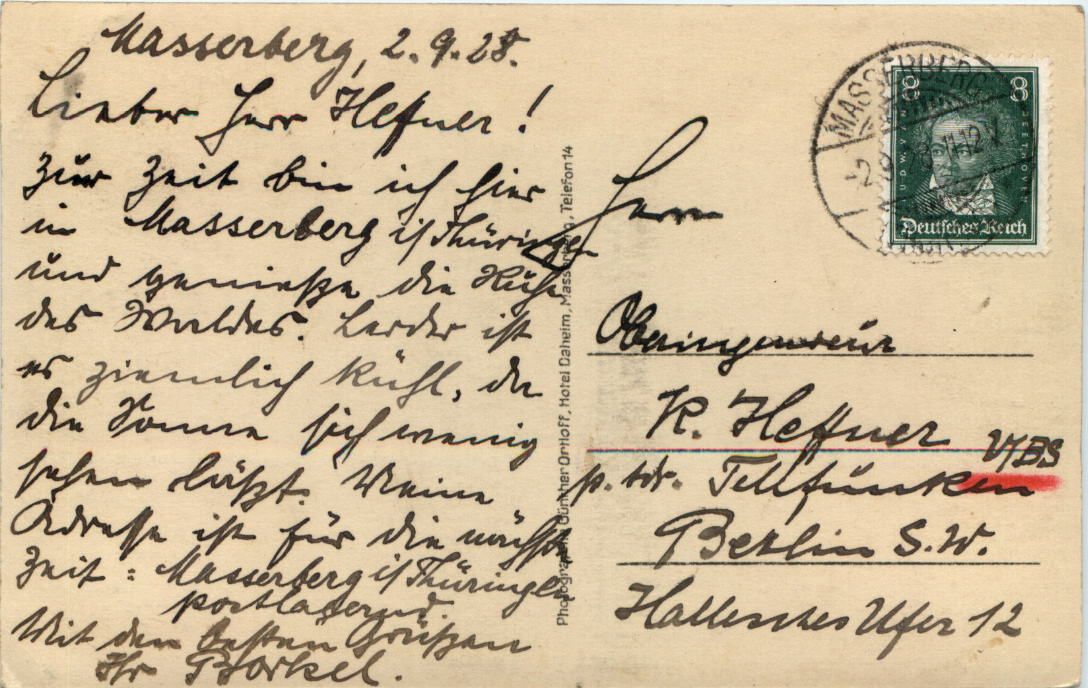 Masserberg, 2.9.28.
Lieber Herr Heffner!
Zur Zeit bin ich hier
in Masserberg i/Thüringen
und genieße die Ruhe
des Waldes. Leider ist
es ziemlich kühl, da
die Sonne sich wenig
sehen läßt. Meine
Adresse ist für die nächste
Zeit: Masserberg i/Thüringen
postlagernd.
Mit den besten Grüßen
Ihr Borkel.
Photographie Günther Ortloff, Hotel Daheim, Masserberg, Telefon 14
MASSERBERG
8 8
Deutsches Reich
Herrn
Oberingenieur
K. Heffner
V/BS
p. Adr. Telefunken
Berlin S.W.
Hallesches Ufer 12